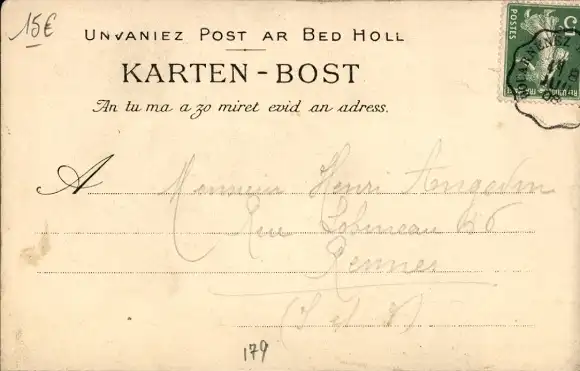 15€
UNVANIEZ POST AR BED HOLL
KARTEN-BOST
An tu ma a zo miret evid an adress.
POSTES
5c
DOUARNENEZ
A Monsieur Henri
Rue Lobineau 6
Rennes
(I et V)
179